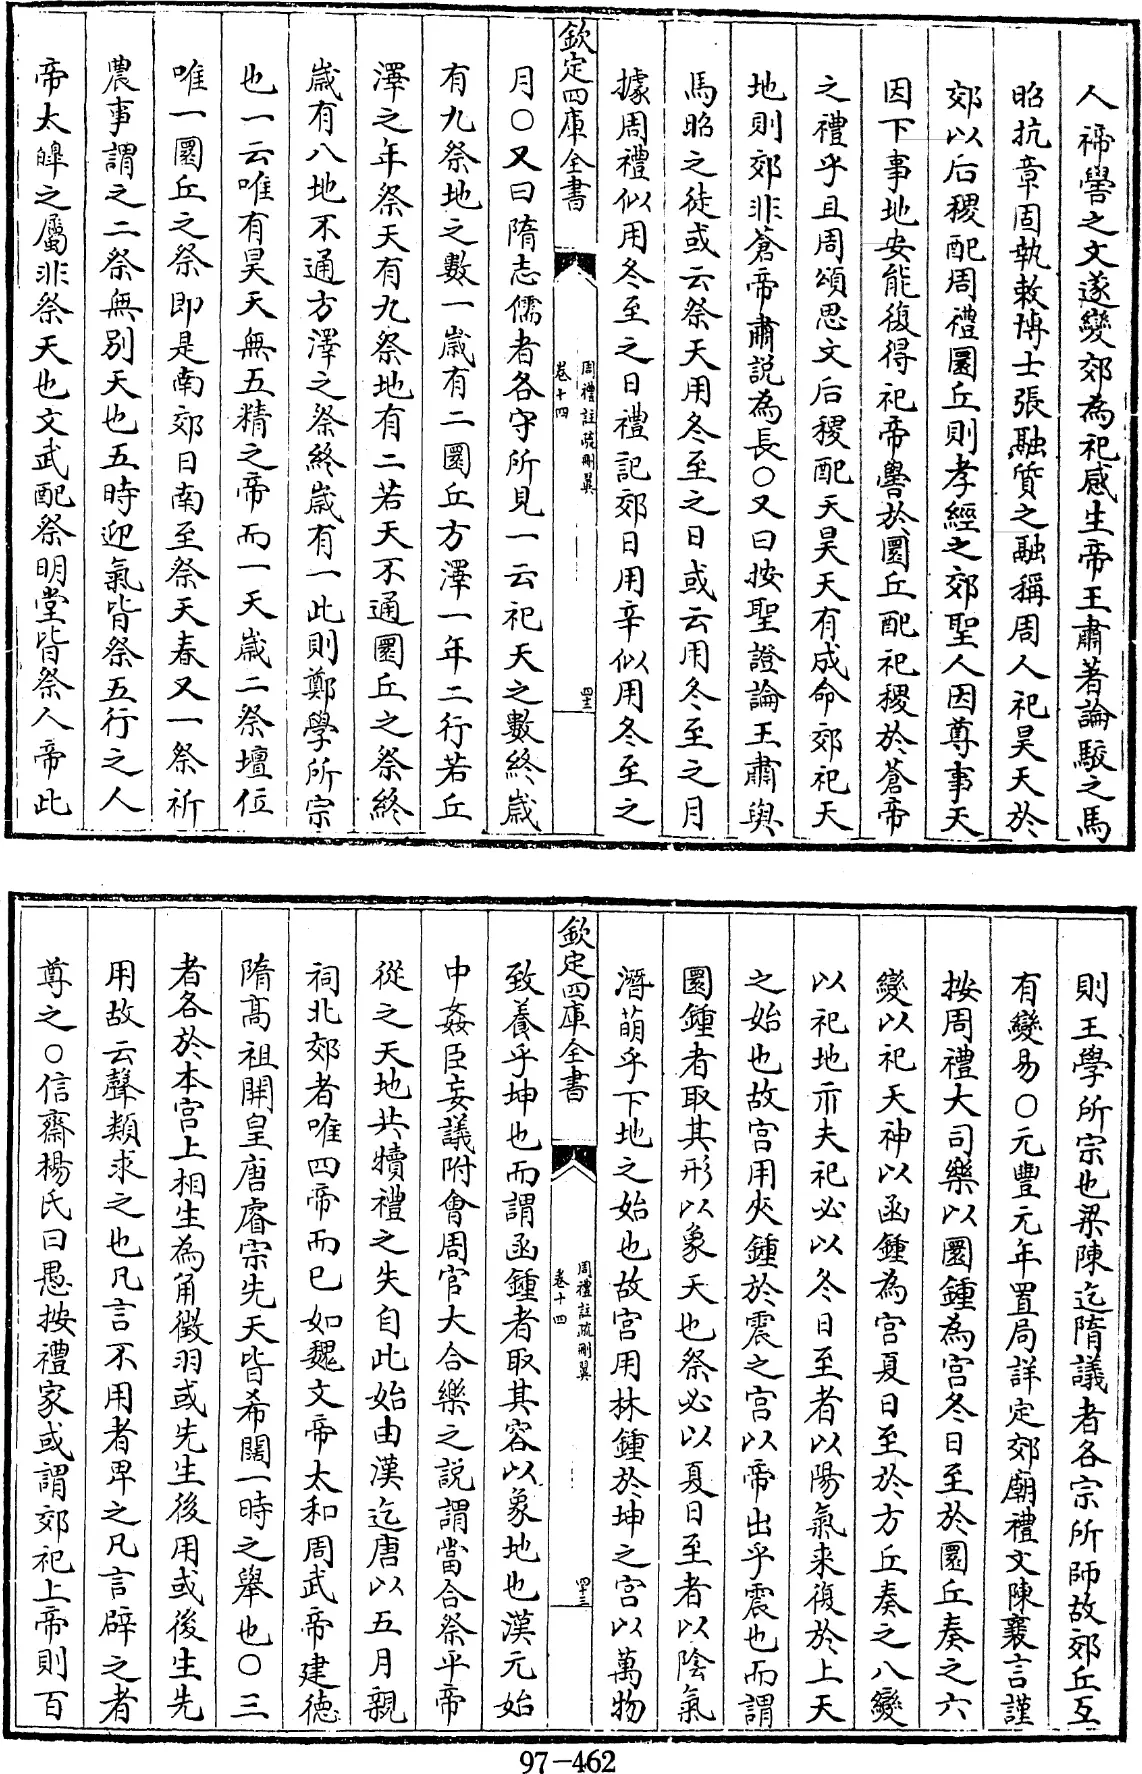 人禘嚳之文遂變郊為祀感生帝王肅著論駁之馬
昭抗章固執敕博士張融質之融稱周人祀昊天於
郊以后稷配周禮圜丘則孝經之郊聖人因尊事天
因下事地安能復得祀帝嚳於圜丘配祀稷於蒼帝
之禮乎且周頌思文后稷配天昊天有成命郊祀天
地則郊非蒼帝肅說為長○又曰按聖證論王肅與
馬昭之徒或云祭天用冬至之日或云用冬至之月
據周禮似用冬至之日禮記郊日用辛似用冬至之
欽定四庫全書
周禮註疏刪翼
卷十四
四十三
月○又曰隋志儒者各守所見一云祀天之數終歲
有九祭地之數一歲有二圜丘方澤一年二行若丘
澤之年祭天有九祭地有二若天不通圜丘之祭終
歲有八地不通方澤之祭終歲有一此則鄭學所宗
也一云唯有昊天無五精之帝而一天歲二祭壇位
唯一圜丘之祭即是南郊日南至祭天春又一祭祈
農事謂之二祭無別天也五時迎氣皆祭五行之人
帝太皡之屬非祭天也文武配祭明堂皆祭人帝此
則王學所宗也梁陳迄隋議者各宗所師故郊丘互
有變易○元豐元年置局詳定郊廟禮文陳襄言謹
按周禮大司樂以圜鍾為宮冬日至於圜丘奏之六
變以祀天神以函鍾為宮夏日至於方丘奏之八變
以祀地示夫祀必以冬日至者以陽氣来復於上天
之始也故宮用夾鍾於震之宮以帝出乎震也而謂
圜鍾者取其形以象天也祭必以夏日至者以陰氣
潛萌乎下地之始也故宮用林鍾於坤之宮以萬物
欽定四庫全書
周禮註疏刪翼
卷十四
四十三
致養乎坤也而謂函鍾者取其容以象地也漢元始
中姦臣妄議附會周官大合樂之説謂當合祭平帝
從之天地共犢禮之失自此始由漢迄唐以五月親
祠北郊者唯四帝而已如魏文帝太和周武帝建德
隋高祖開皇唐睿宗先天皆希闊一時之舉也○三
者各於本宮上相生為角徵羽或先生後用或後生先
用故云聲類求之也凡言不用者卑之凡言辟之者
尊之○信齋楊氏曰愚按禮家或謂郊祀上帝則百
97-462